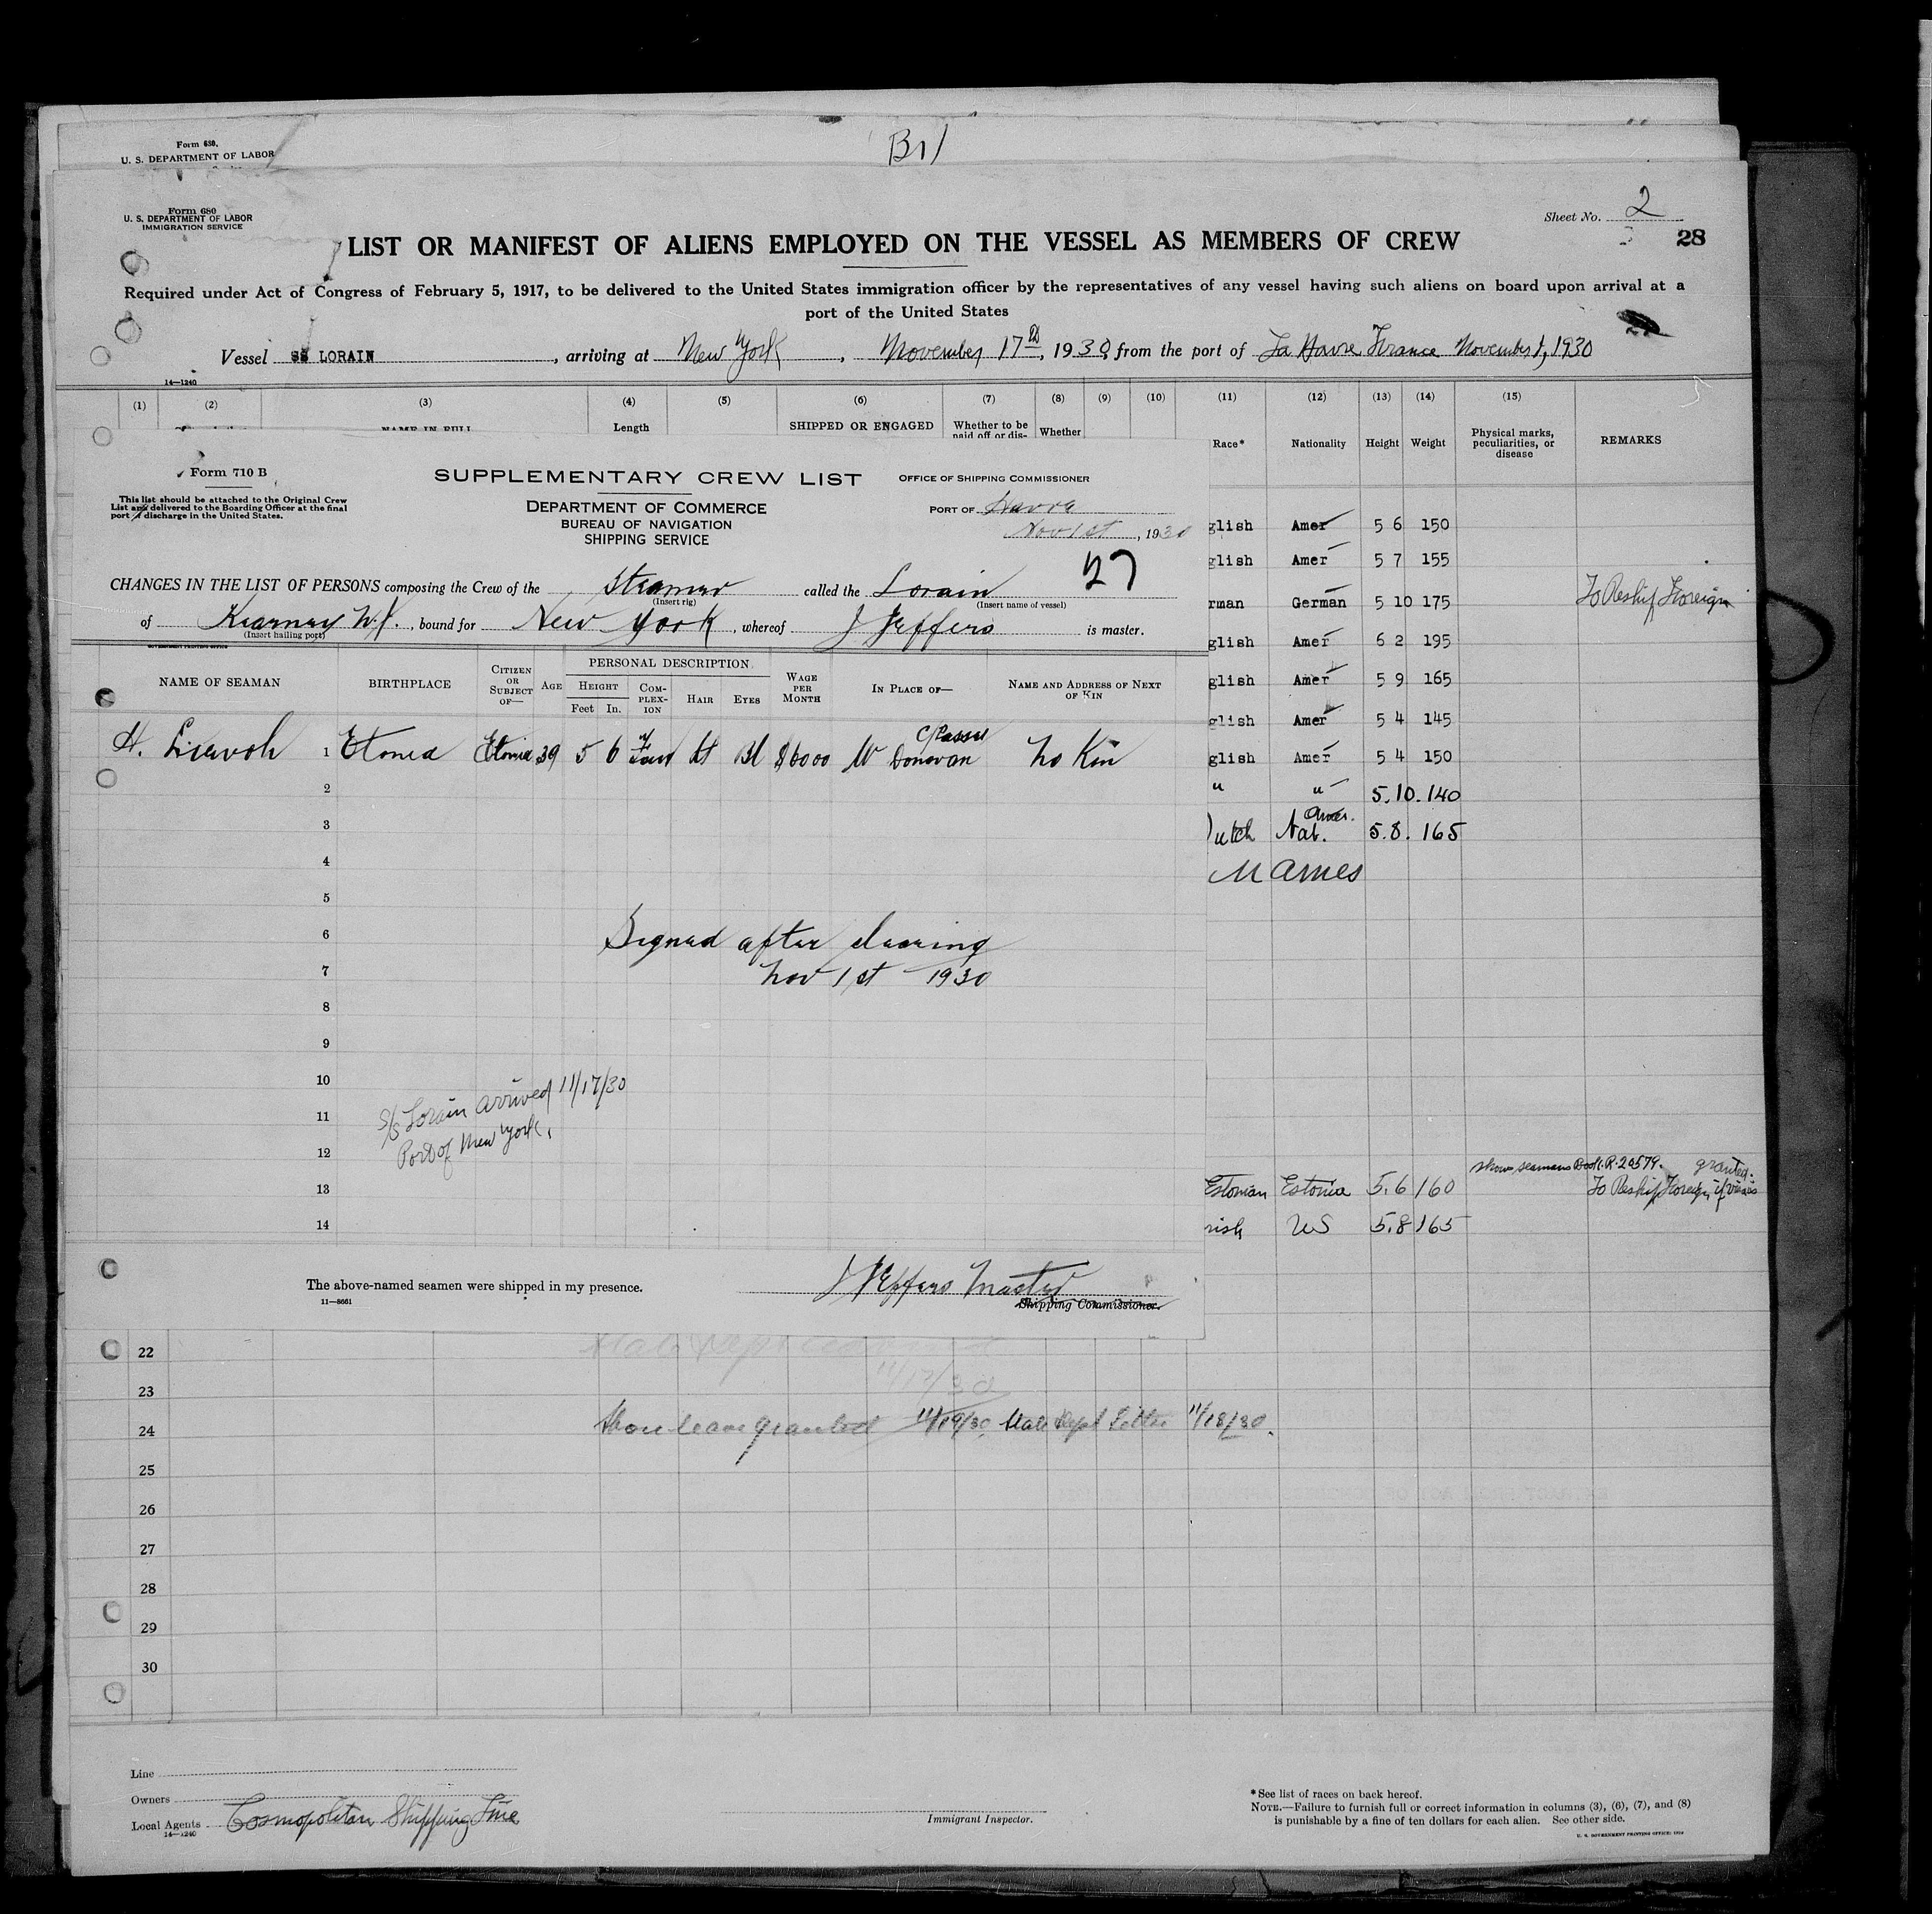 Form 680.
U. S. DEPARTMENT OF LABOR
B11
Form 680
U. S. DEPARTMENT OF LABOR
IMMIGRATION SERVICE
Sheet No. 2
28
LIST OR MANIFEST OF ALIENS EMPLOYED ON THE VESSEL AS MEMBERS OF CREW
Required under Act of Congress of February 5, 1917, to be delivered to the United States immigration officer by the representatives of any vessel having such aliens on board upon arrival at a
port of the United States
Vessel SS LORAIN, arriving at New York, November 17th, 1930, from the port of La Havre France November 1, 1930
14—1240
(1) (2) (3) (4) (5) (6) (7) (8) (9) (10) (11) (12) (13) (14) (15)
NAME IN FULL Length SHIPPED OR ENGAGED Whether to be paid off or dis- Whether Race* Nationality Height Weight Physical marks, peculiarities, or disease REMARKS
Form 710 B
This list should be attached to the Original Crew
List and delivered to the Boarding Officer at the final
port of discharge in the United States.
SUPPLEMENTARY CREW LIST
DEPARTMENT OF COMMERCE
BUREAU OF NAVIGATION
SHIPPING SERVICE
OFFICE OF SHIPPING COMMISSIONER
PORT OF Havre
Nov 1st, 1930
27
CHANGES IN THE LIST OF PERSONS composing the Crew of the Steamer called the Lorain
(Insert rig) (Insert name of vessel)
of Kearney N.J., bound for New York, whereof J Jeffers is master.
(Insert hailing port)
GOVERNMENT PRINTING OFFICE
NAME OF SEAMAN BIRTHPLACE CITIZEN OR SUBJECT OF— AGE PERSONAL DESCRIPTION HEIGHT Feet In. COMPLEXION HAIR EYES WAGE PER MONTH IN PLACE OF— NAME AND ADDRESS OF NEXT OF KIN
1 Etonia Etonia 39 5 6 Fair Lt Bl $6000 W Donovan No Kin
2
3
4
5
6
7
8
9
10
11
12
13
14
Signed after clearing
Nov 1st 1930
S/S Lorain arrived 11/17/30
Port of New York.
The above-named seamen were shipped in my presence.
11—8661
J Jeffers Master
Shipping Commissioner.
glish Amer 5 6 150
glish Amer 5 7 155
rman German 5 10 175 To Reship Foreign
glish Amer 6 2 195
glish Amer 5 9 165
glish Amer 5 4 145
glish Amer 5 4 150
" " 5.10. 140
utch Nat. Amer. 5.8. 165
M Ames
shows seamans Book. R. 20579. granted.
Estonian Estonia 5.6 160 To Reship Foreign if vise is
rish US 5.8 165
22
23
24 Shore leave granted 11/19/30 State Dept Letter 11/18/30.
25
26
27
28
29
30
Line
Owners
Local Agents Cosmopolitan Shipping Line
14—1240
Immigrant Inspector.
*See list of races on back hereof.
NOTE.—Failure to furnish full or correct information in columns (3), (6), (7), and (8)
is punishable by a fine of ten dollars for each alien. See other side.
U. S. GOVERNMENT PRINTING OFFICE: 1929